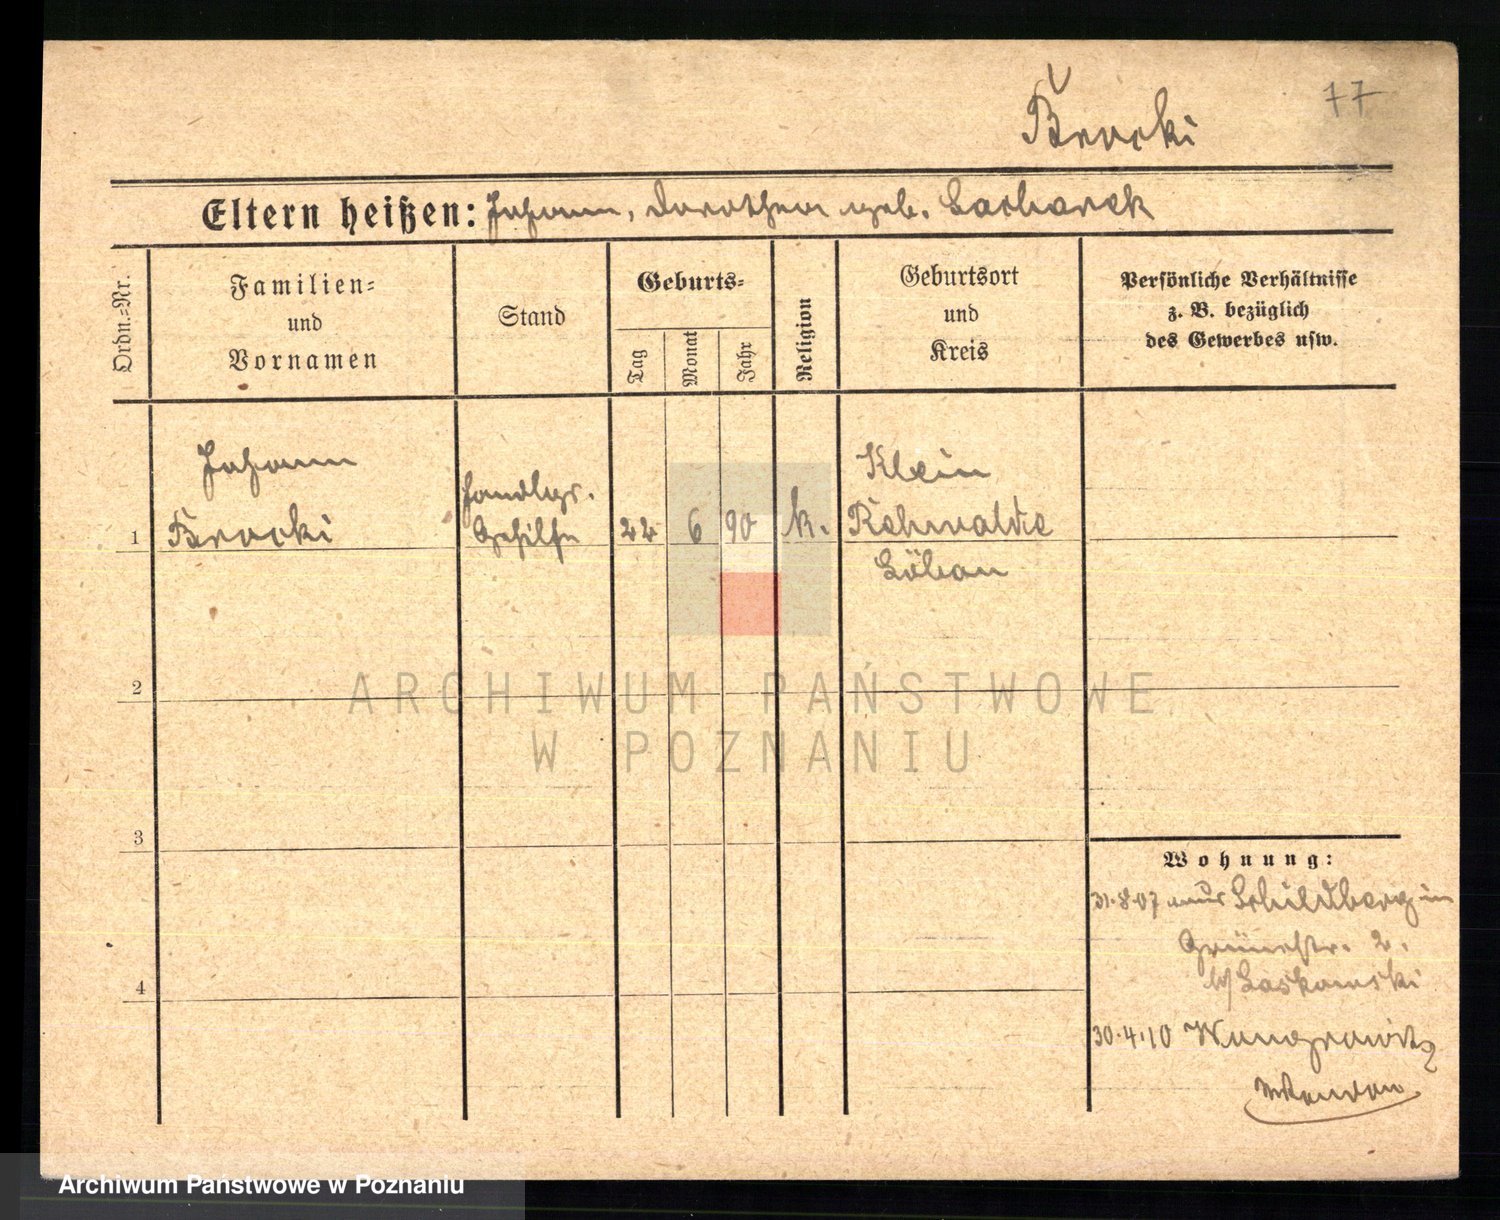 77
Brocki
Eltern heißen: Johann, Dorothea geb. Lacharek
Ordn.=Nr.
Familien=
und
Vornamen
Stand
Geburts=
Tag
Monat
Jahr
Religion
Geburtsort
und
Kreis
Persönliche Verhältnisse
z. B. bezüglich
des Gewerbes usw.
1
Johann
Brocki
Handlgs.
Gehilfe
24
6
90
k.
Klein
Rehwalde
Löbau
2
3
4
Wohnung:
31.8.07 aus Schildberg in
Grünestr. 2.
b/ Laskowski
30.4.10 Wongrowitz
ARCHIWUM PAŃSTWOWE
W POZNANIU
Archiwum Państwowe w Poznaniu